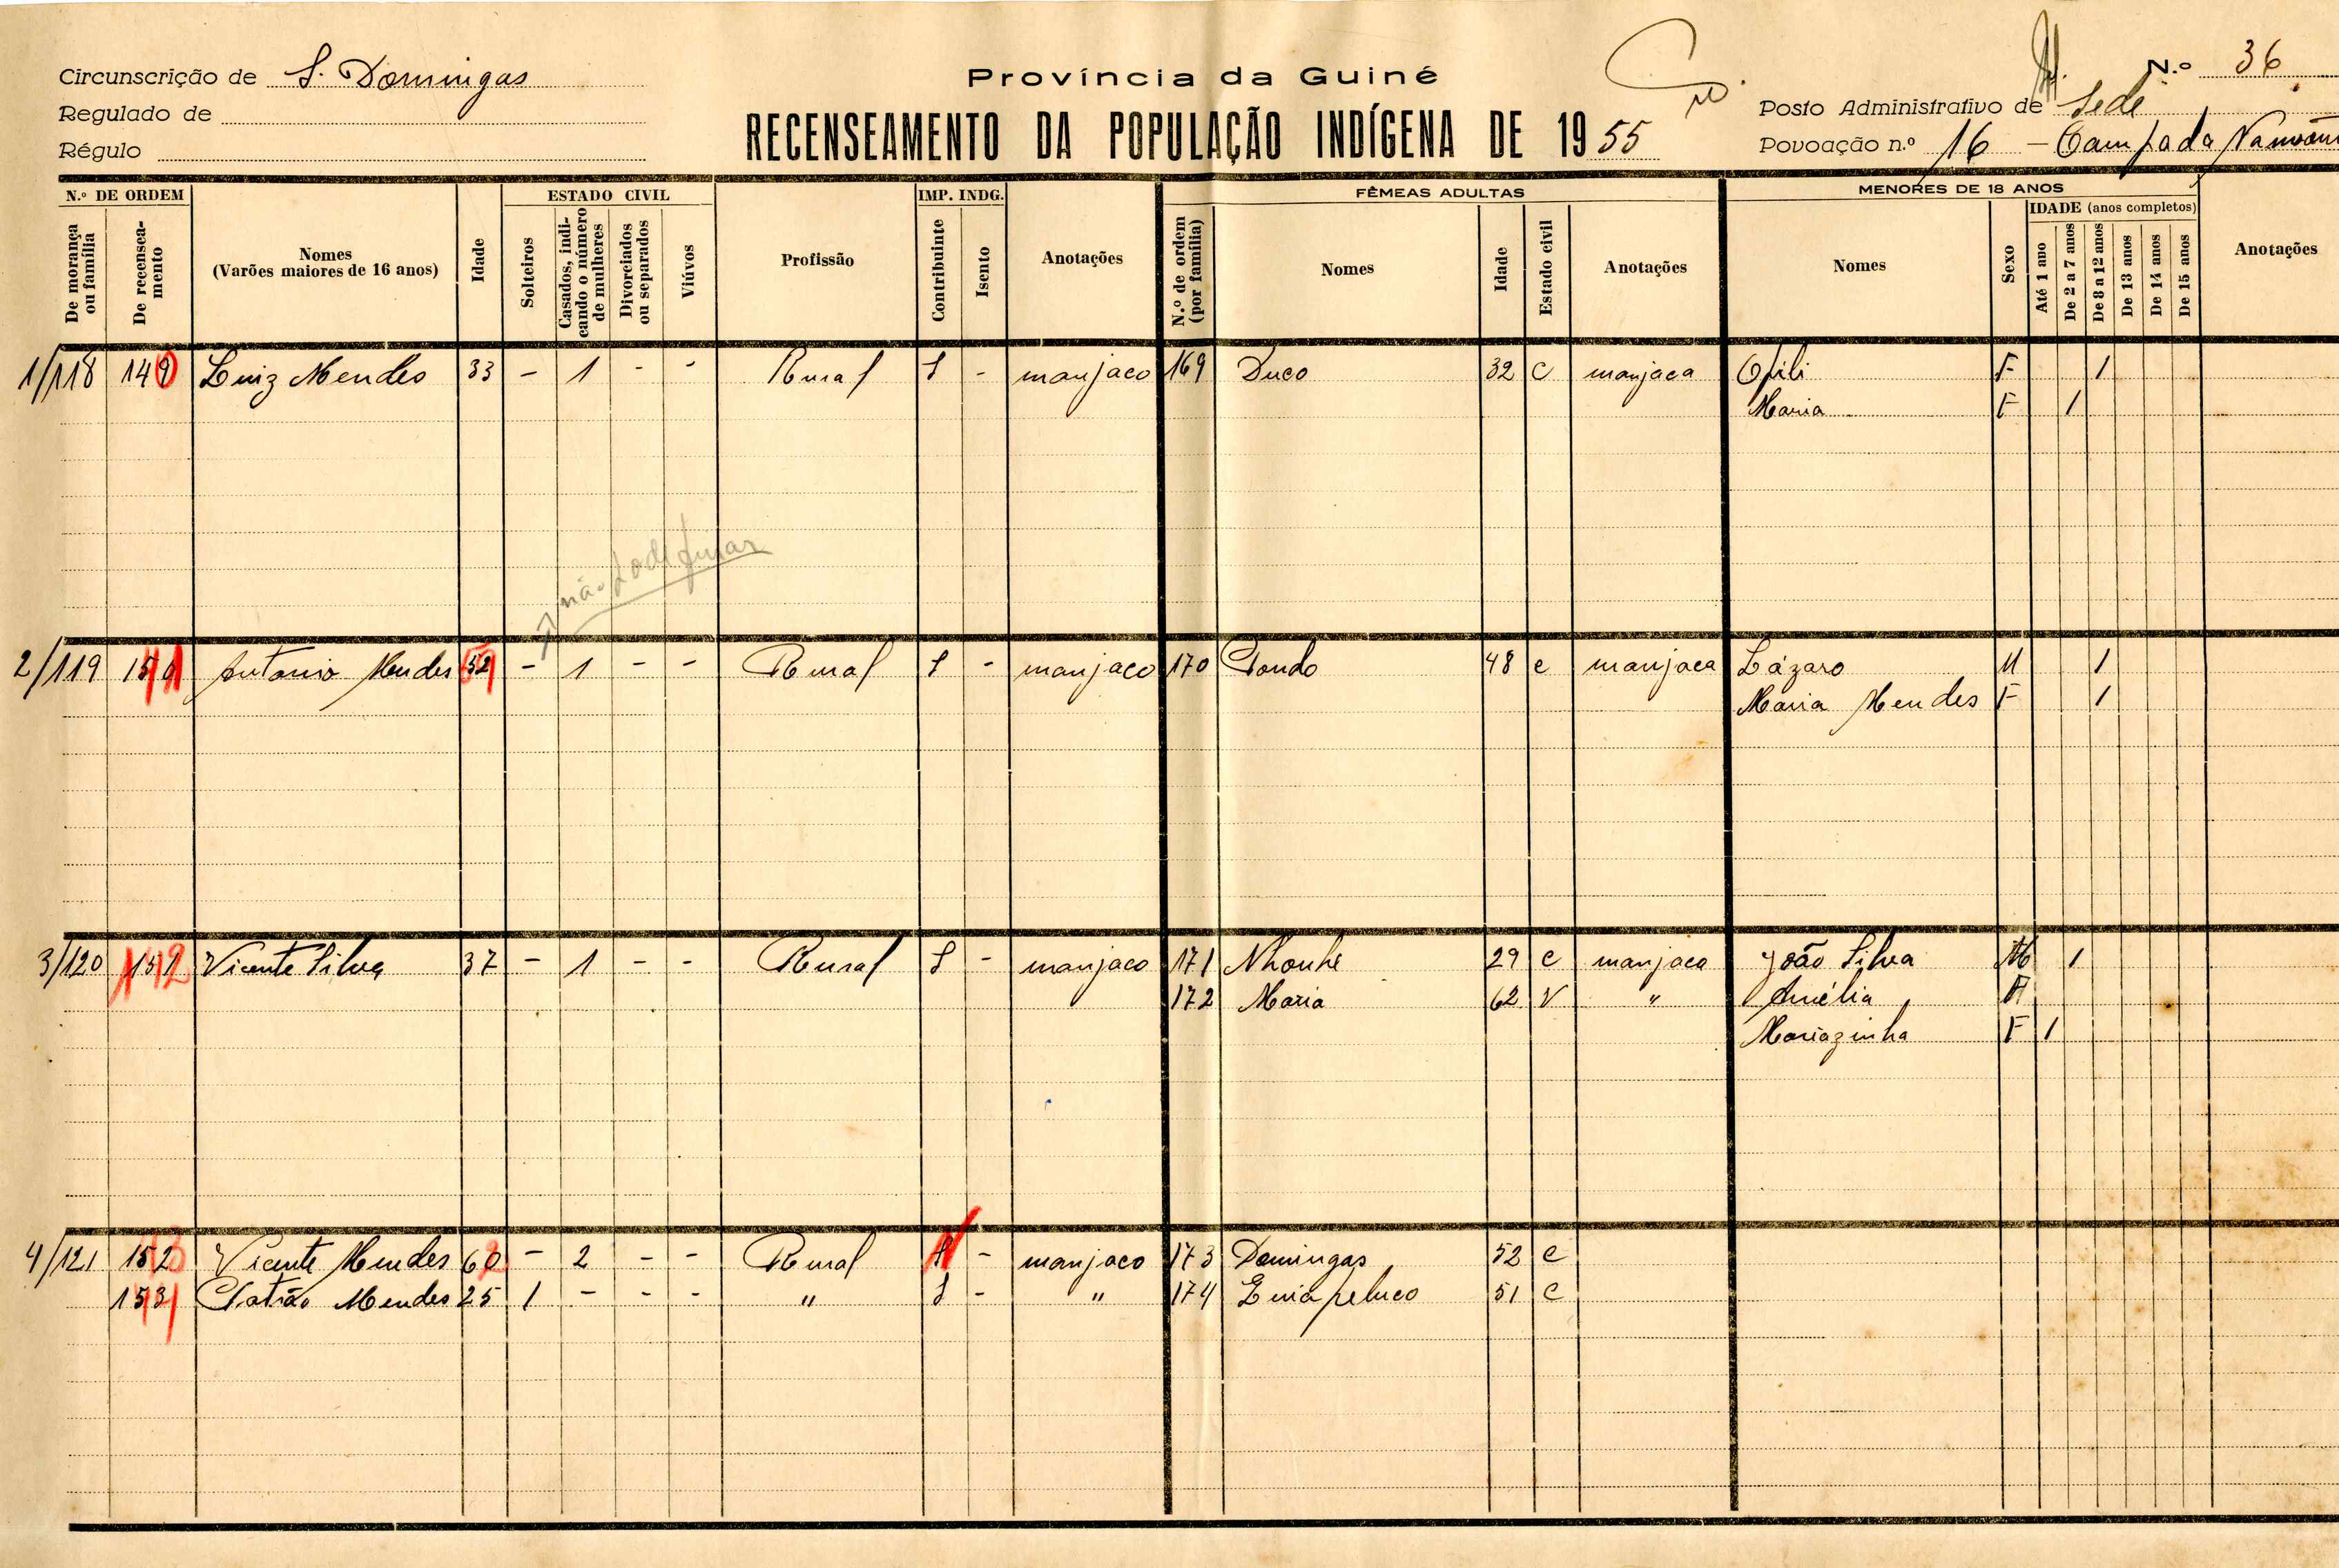 Circunscrição de S. Domingas
Regulado de
Régulo
Província da Guiné
RECENSEAMENTO DA POPULAÇÃO INDÍGENA DE 1955
N.º 36
Posto Administrativo de Sede
Povoação n.º 16 -
N.º DE ORDEM
De morança ou família
De recenseamento
Nomes
(Varões maiores de 16 anos)
Idade
ESTADO CIVIL
Solteiros
Casados, indicando o número de mulheres
Divorciados ou separados
Viúvos
Profissão
IMP. INDG.
Contribuinte
Isento
Anotações
FÊMEAS ADULTAS
N.º de ordem (por família)
Nomes
Idade
Estado civil
Anotações
MENORES DE 18 ANOS
Nomes
Sexo
IDADE (anos completos)
Até 1 ano
De 2 a 7 anos
De 8 a 12 anos
De 13 anos
De 14 anos
De 15 anos
Anotações
1/118 Luiz Mendes 33 - 1 - - Rural S - manjaco 169 Duco 32 C manjaca Opili F 1
Maria F 1
não
2/119 Antonio Mendes - 1 - - Rural S - manjaco 170 48 c manjaca Lázaro M 1
Maria Mendes F 1
3/120 Vicente Silva 37 - 1 - - Rural S - manjaco 171 Nhonhe 29 c manjaca João Silva M 1
172 Maria 62 V " Amélia F
Mariazinha F 1
4/121 152 Vicente Mendes 60 - 2 - - Rural - manjaco 173 Domingas 52 c
153 Patrão Mendes 25 1 - - - " S - " 174 51 c